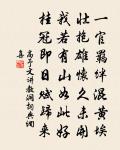 一官羈絆混黄埃
壯抱雄懷久未開
我若有山如此好
挂冠即日賦歸來
高子文講教澗詞
喜